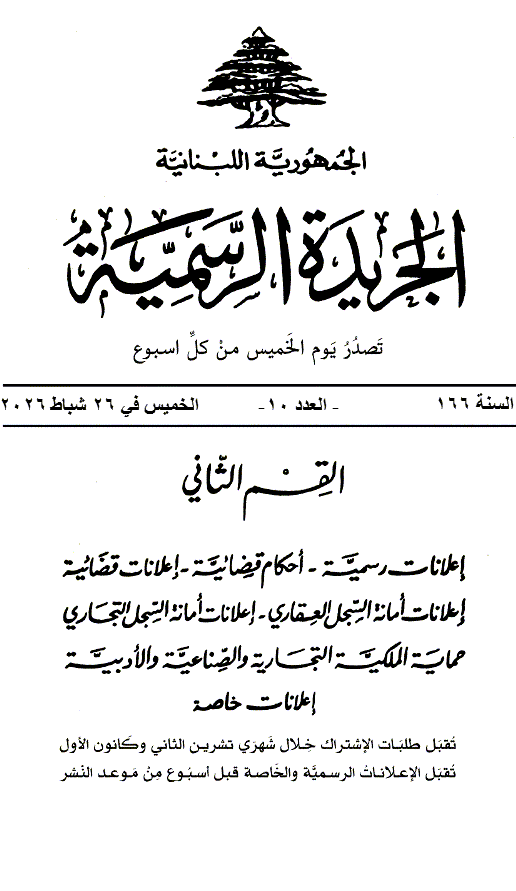 الجمهورية اللبنانية
الجريدة الرسمية
تَصدُرُ يَوم الخَميس مِنْ كلِّ اسبوع
السنة ١٦٦ - العدد ١٠ - الخميس في ٢٦ شباط ٢٠٢٦
القِسم الثاني
إعلانات رسميَّة - أحكام قضائيَّة - إعلانات قضائية
إعلانات أمانة السجل العقاري - إعلانات أمانة السجل التجاري
حماية الملكيَّة التجارية والصِّناعيَّة والأدبيَّة
إعلانات خاصة
تُقبَل طلبَات الإشتراك خِلال شَهرَي تشرين الثاني وكَانون الأول
تُقبَل الإعلاناتُ الرسميَّة والخَاصة قبل أسبُوع مِنْ مَوعد النَشر